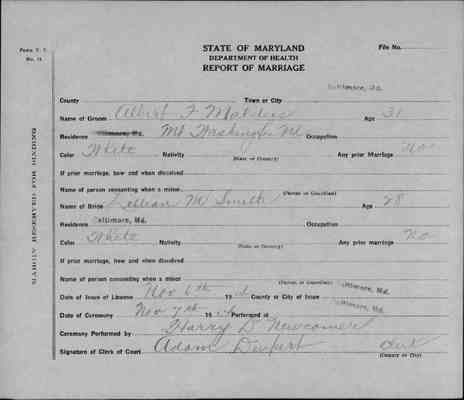 FORM V. S.
No. 11
STATE OF MARYLAND
DEPARTMENT OF HEALTH
REPORT OF MARRIAGE
File No.
Baltimore, Md.
County Town or City
Name of Groom Albert F Age 31
Residence Baltimore, Md. Mt Washington Md Occupation
Color White Nativity (State or Country) Any prior Marriage No
If prior marriage, how and when dissolved
Name of person consenting when a minor (Parent or Guardian)
Name of Bride Lillian M Smith Age 28
Residence Baltimore, Md. Occupation
Color White Nativity (State or Country) Any prior marriage No
If prior marriage, how and when dissolved
Name of person consenting when a minor (Parent or Guardian) Baltimore, Md.
Date of Issue of License Nov 6th 19 County or City of Issue
Baltimore, Md.
Date of Ceremony Nov 7th 19 Performed at
Ceremony Performed by Harry D Newcomer
Signature of Clerk of Court Adam Deupert Clerk
(County or City)
MARGIN RESERVED FOR BINDING